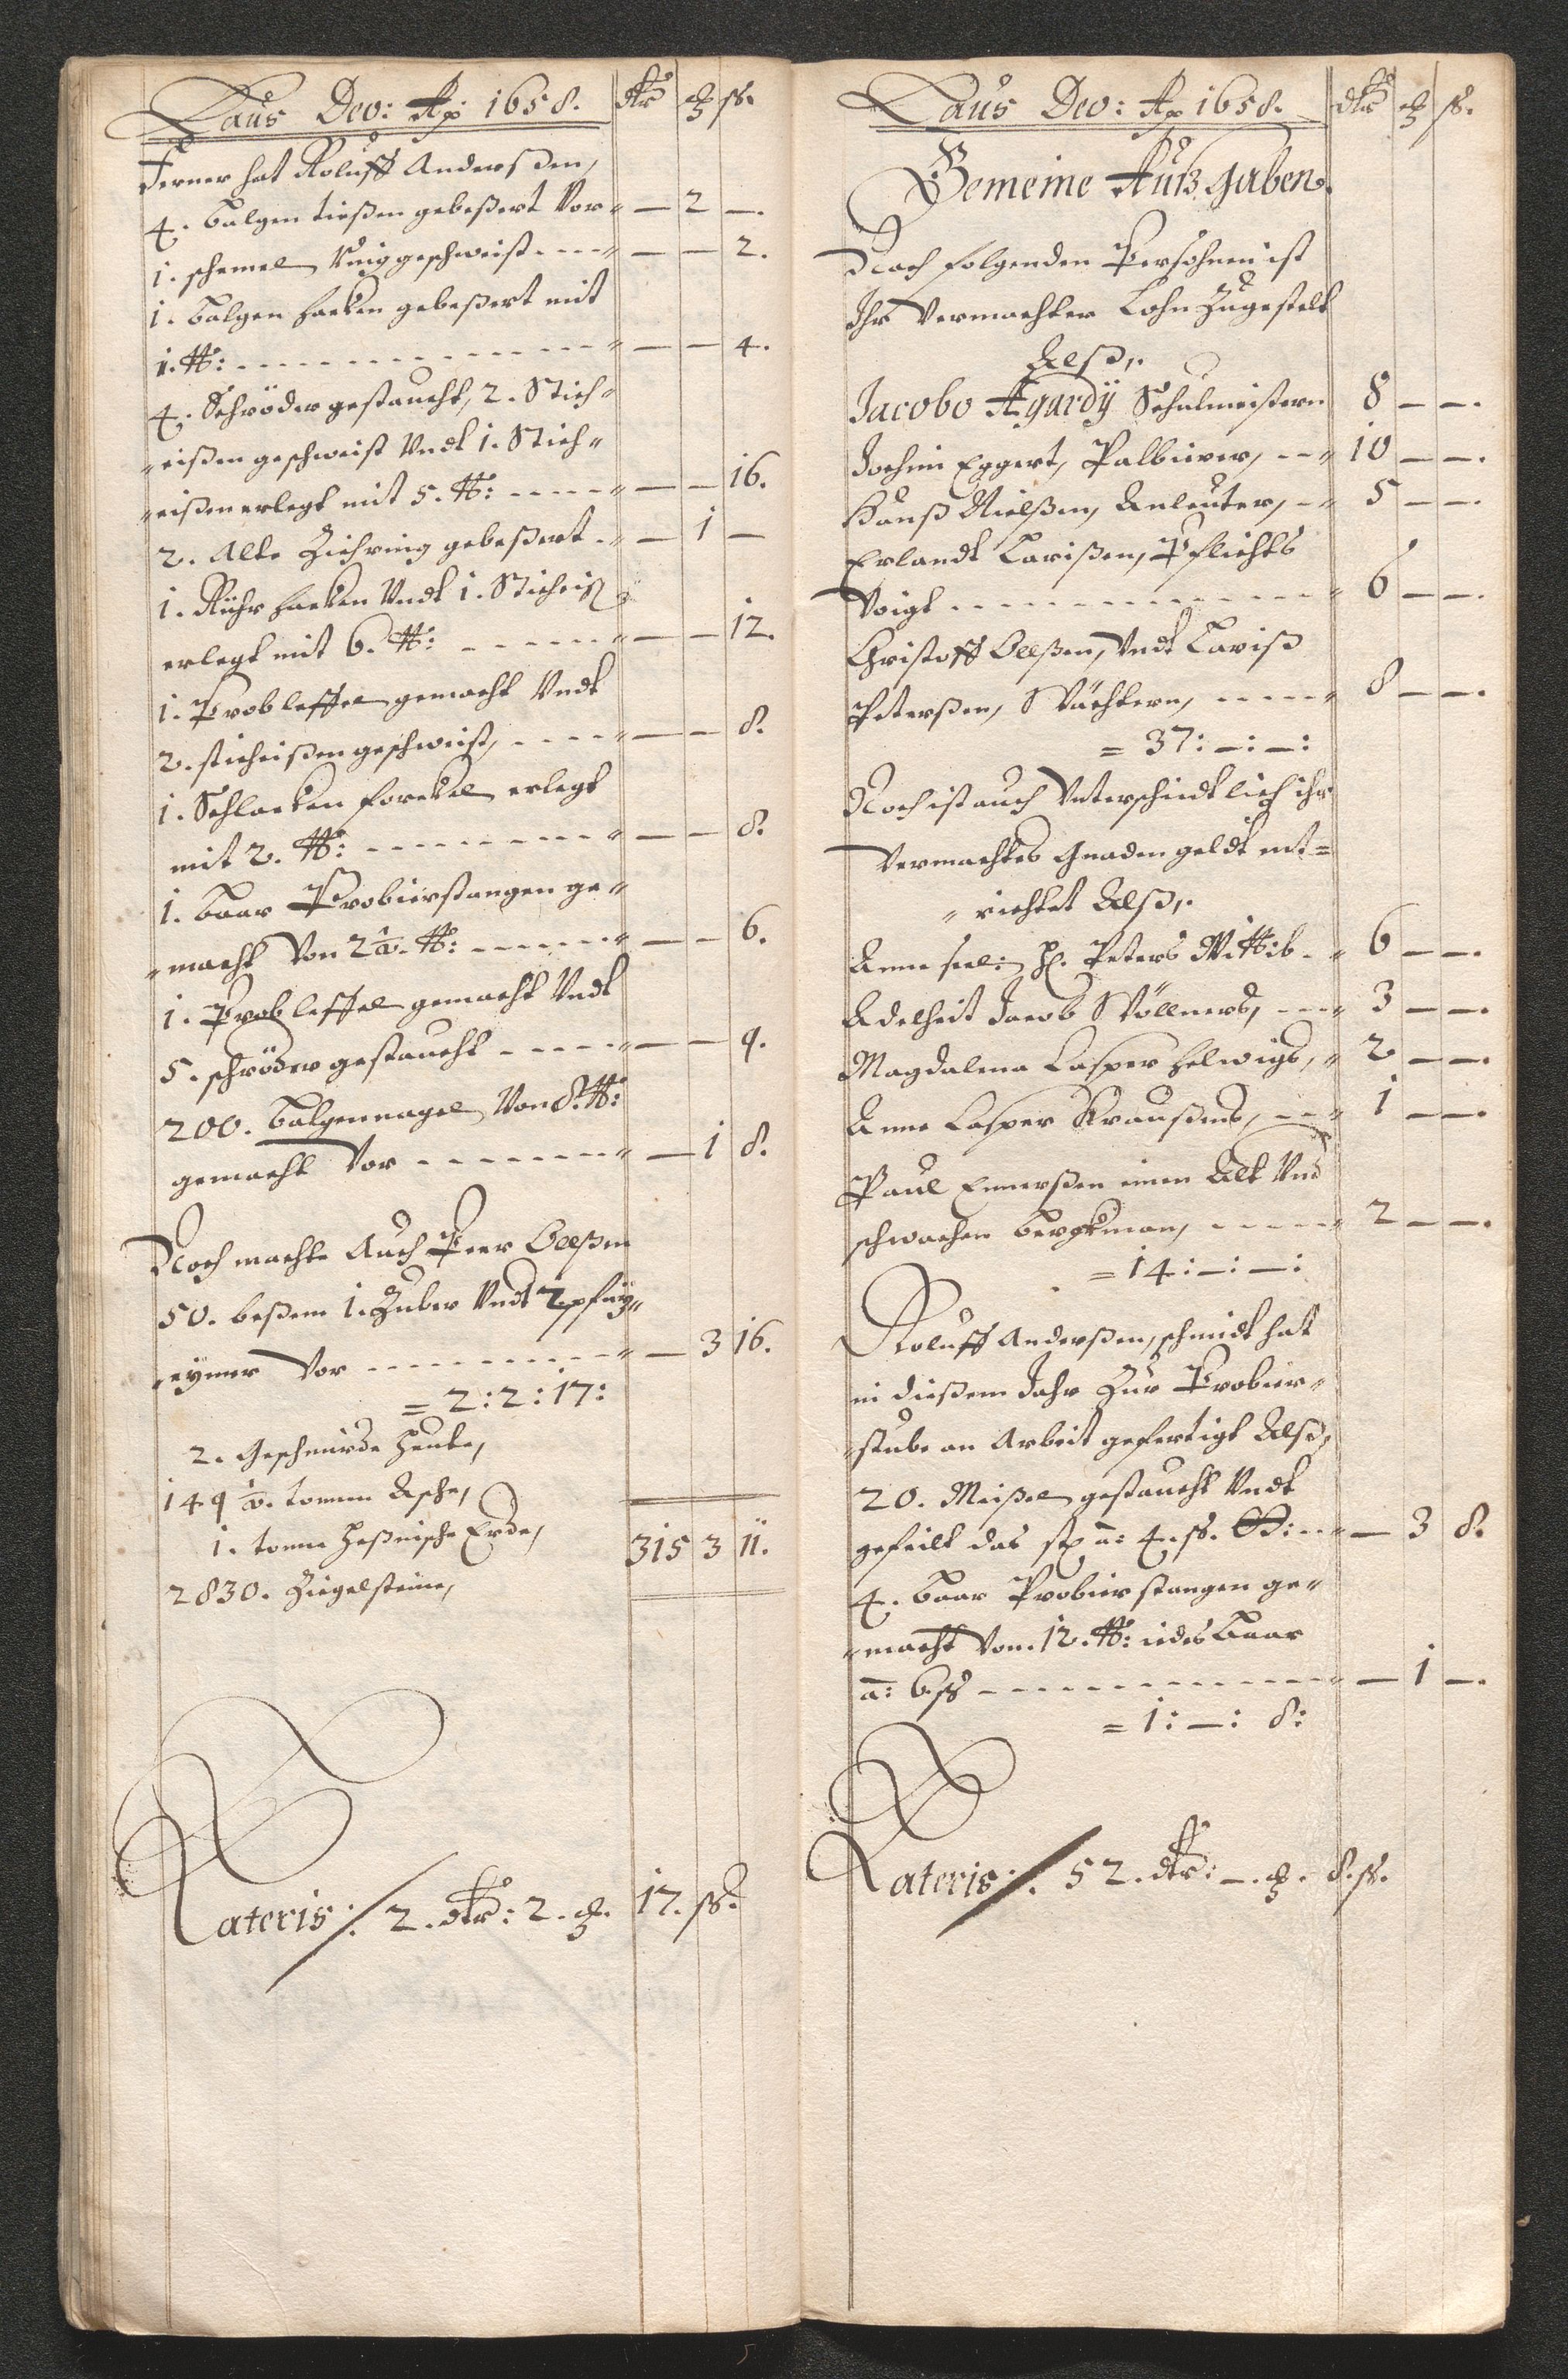 Laus Deo: Ao: 1658. dlr ꝗ ß.
Ferner hat Roluff Anderßen,
4. balgen tießen gebeßert Vor — 2 —.
1. schemel Ring geschweist — — 2.
1. balgen haeken gebeßert mit
1. ℔: — — 4.
4. Schröder gestaucht, 2. Stich-
eißen geschweist Vndt 1. Stich-
eißen erlegt mit 5. ℔: — — 16.
2. Alte Ziehring gebeßert — 1 —
1. Rühr haeken Vndt 1. Sticheiß
erlegt mit 6. ℔: — — 12.
1. Prob leffel gemacht Vndt
2. sticheißen geschweist, — — 8.
1. Schlacken forckel erlegt
mit 2. ℔: — — 8.
1. baar Probierstangen ge-
macht Von 2 1/2. ℔: — — 6.
1. Prob leffel gemacht Vndt
5. schröder gestaucht — — 9.
200. balgennagel Von 8. ℔:
gemacht Vor — 1 8.
Noch machte Auch Peer Olßen
50. beßem 1. Zuber Vndt 2
eymer Vor — 3 16.
= 2: 2: 17:
2. Geschmirde Heute,
149 1/2. tonnen Asche,
1. tonne Heßnische Erde, 315 3 11.
2830. Ziegelsteine,
Lateris ∕. 2. dlr: 2. ꝗ. 17. ß.
Laus Deo: Ao 1658. dlr ꝗ ß.
Gemeine Außgaben.
Noch folgenden Persohnen ist
Ihr Vermachter Lohn Zugestelt
Alß,.
Jacobo Agardÿ Schulmeistern 8 — —.
Jochim Eggert, Palbierer, 10 — —.
Hanß Nielßen, Anleuter, 5 — —.
Erlandt Larißen, Pflichts
Voigt 6 — —.
Christoff Olßen, Vndt Lariß
Peterßen, Wächtern, 8 — —.
= 37: —: —:
Noch ist auch Vnterschiedtlich ihr
Vermachtes Gnaden geldt ent=
richtet Alß,.
Anna seel: H. Peters Wittib 6 — —.
Adelheit Jacob Wöllners, 3 — —.
Magdalena Casper Helwigs, 2 — —.
Anna Casper Kraußens, 1 — —.
Paul Ennerßen einen Alt Vnd
schwachen bergkman, 2 — —.
= 14: —: —:
Roluff Anderßen, schmidt hat
in dießem Jahr Zur Probier-
stube an Arbeit gefertigt Alß,
20. Meißel gestaucht Vndt
gefeilt das stß a: 4. ß. — 3 8.
4. baar Probierstangen ge-
macht Vom 12. ℔: iedes baar
a: 6 ß — 1 —.
= 1: —: 8:
Lateris ∕. 52. dlr: —. ꝗ. 8. ß.